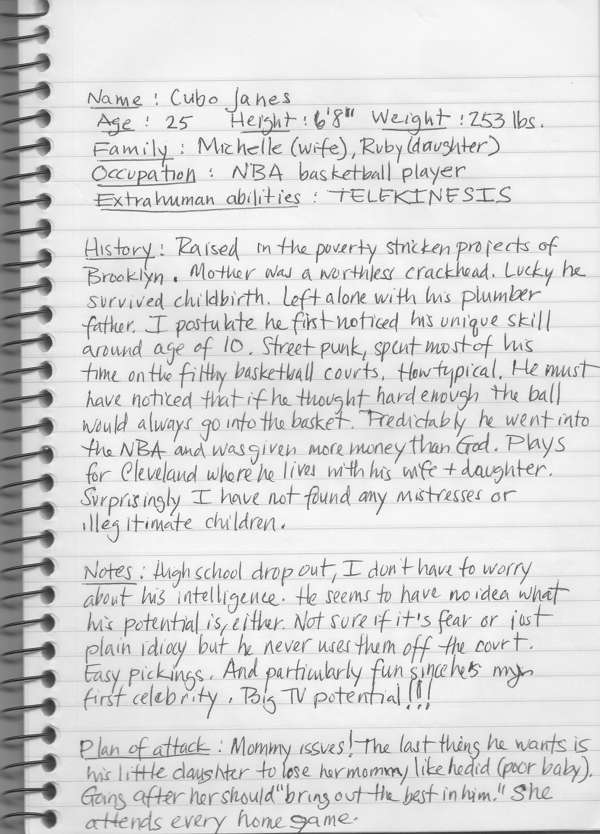 Name : Cubo Janes
Age : 25 Height : 6'8" Weight : 253 lbs.
Family : Michelle (wife), Ruby (daughter)
Occupation : NBA basketball player
Extrahuman abilities : TELEKINESIS
History : Raised in the poverty stricken projects of
Brooklyn. Mother was a worthless crackhead. Lucky he
survived childbirth. Left alone with his plumber
father. I postulate he first noticed his unique skill
around age of 10. Street punk, spent most of his
time on the filthy basketball courts. How typical. He must
have noticed that if he thought hard enough the ball
would always go into the basket. Predictably he went into
the NBA and was given more money than God. Plays
for Cleveland where he lives with his wife + daughter.
Surprisingly I have not found any mistresses or
illegitimate children.
Notes : High school drop out, I don't have to worry
about his intelligence. He seems to have no idea what
his potential is, either. Not sure if it's fear or just
plain idiocy but he never uses them off the court.
Easy pickings. And particularly fun since he's my
first celebrity. Big TV potential!!!
Plan of attack : Mommy issues! The last thing he wants is
his little daughter to lose her mommy like he did (poor baby).
Going after her should "bring out the best in him." She
attends every home game.